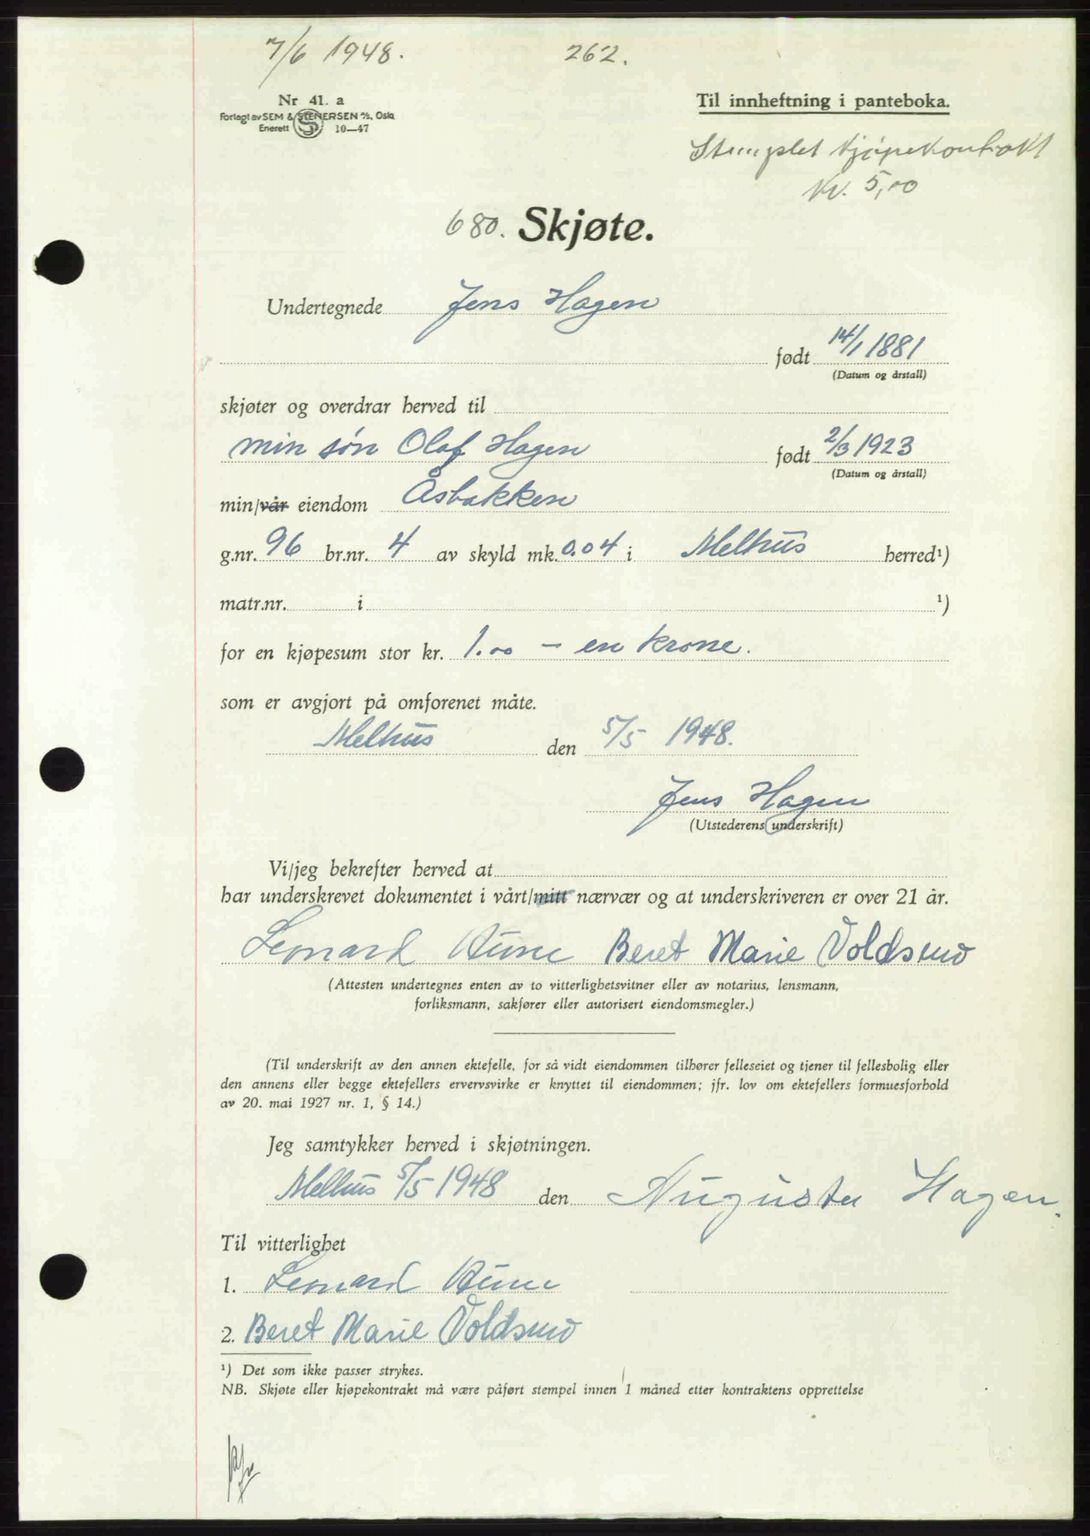 7/6 1948. 262.
Nr 41. a
Forlagt av SEM & STENERSEN A/S, Oslo
Enerett 10—47
Til innheftning i panteboka.
Stemplet kjøpekontrakt
kr. 5,00
680. Skjøte.
Undertegnede Jens Hagen
født 14/1 1881
(Datum og årstall)
skjøter og overdrar herved til
min søn Olaf Hagen født 2/3 1923
(Datum og årstall)
min/vår eiendom Åsbakken
g.nr. 96 br.nr. 4 av skyld mk. 0.04 i Melhus herred¹)
matr.nr. i ¹)
for en kjøpesum stor kr. 1.00 – en krone.
som er avgjort på omforenet måte.
Melhus den 5/5 1948.
Jens Hagen
(Utstederens underskrift)
Vi/jeg bekrefter herved at
har underskrevet dokumentet i vårt/mitt nærvær og at underskriveren er over 21 år.
Leonard Aune Beret Marie Voldsmo
(Attesten undertegnes enten av to vitterlighetsvitner eller av notarius, lensmann,
forliksmann, sakfører eller autorisert eiendomsmegler.)
(Til underskrift av den annen ektefelle, for så vidt eiendommen tilhører felleseiet og tjener til fellesbolig eller
den annens eller begge ektefellers erversvirke er knyttet til eiendommen; jfr. lov om ektefellers formuesforhold
av 20. mai 1927 nr. 1, § 14.)
Jeg samtykker herved i skjøtningen.
Melhus 5/5 1948 den Augusta Hagen.
Til vitterlighet
1. Leonard Aune
2. Beret Marie Voldsmo
¹) Det som ikke passer strykes.
NB. Skjøte eller kjøpekontrakt må være påført stempel innen 1 måned etter kontraktens opprettelse